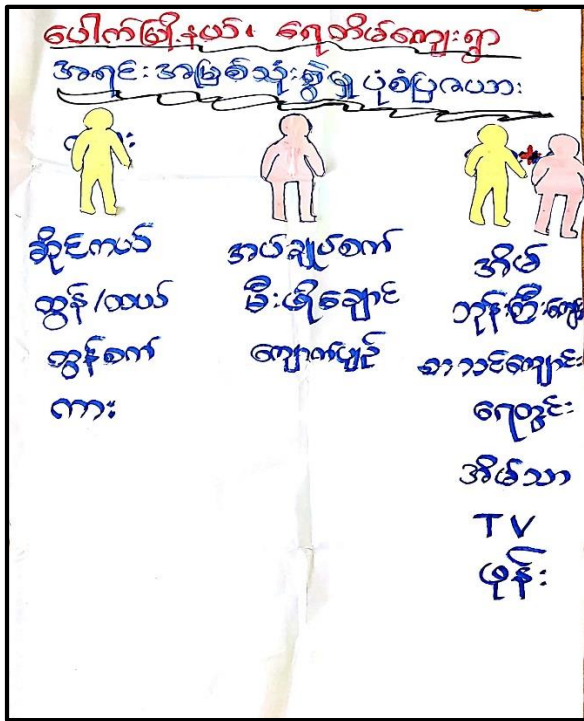 ပေါက်မြို့နယ်၊ ရေတိမ်ကျေးရွာ
အရင်းအမြစ်သုံးစွဲမှု ပုံစံပြဇယား
ဆိုင်ကယ်
ထွန်/ထယ်
ထွန်စက်
ကား
အပ်ချုပ်စက်
မီးဖိုချောင်
ကျောက်ပျဉ်
အိမ်
ဘုန်းကြီးကျောင်း
စာသင်ကျောင်း
ရေတွင်း
အိမ်သာ
TV
ဖုန်း